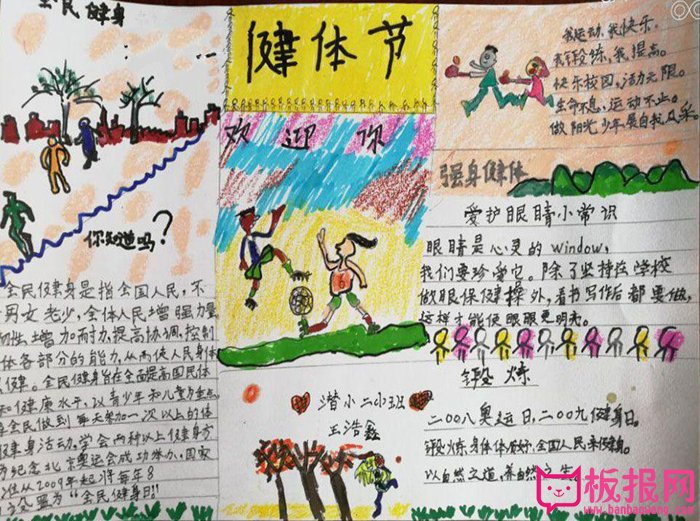 全民健身
你知道吗?
全民健身是指全国人民,不
男女老少,全体人民增强力量
韧性,增加耐力,提高协调,控制
体各部分的能力,从而使人民身体
健。全民健身旨在全面提高国民体
和健康水平,以青少年和儿童为重点
全民做到每天参加一次以上的体
健身活动,学会两种以上健身方
为纪念北京奥运会成功举办,国家
准从2009年起,将每年8
为"全民健身日"
健体节
欢迎你
6
潜小二小班
王浩鑫
我运动,我快乐。
去锻炼,我提高。
快乐校园,活动无限。
生命不息,运动不止。
做阳光少年展自我风采。
强身健体
爱护眼睛小常识
眼睛是心灵的window,
我们要珍爱它。除了坚持在学校
做眼保健操外,看书写作后都要做,
这样才能使眼眼更明亮。
锻炼
二00八奥运日,二00九健身日。
锻炼身体体质好,全国人民来健身。
以自然之道,养自然之生。
板报网
www.banbaowang.com